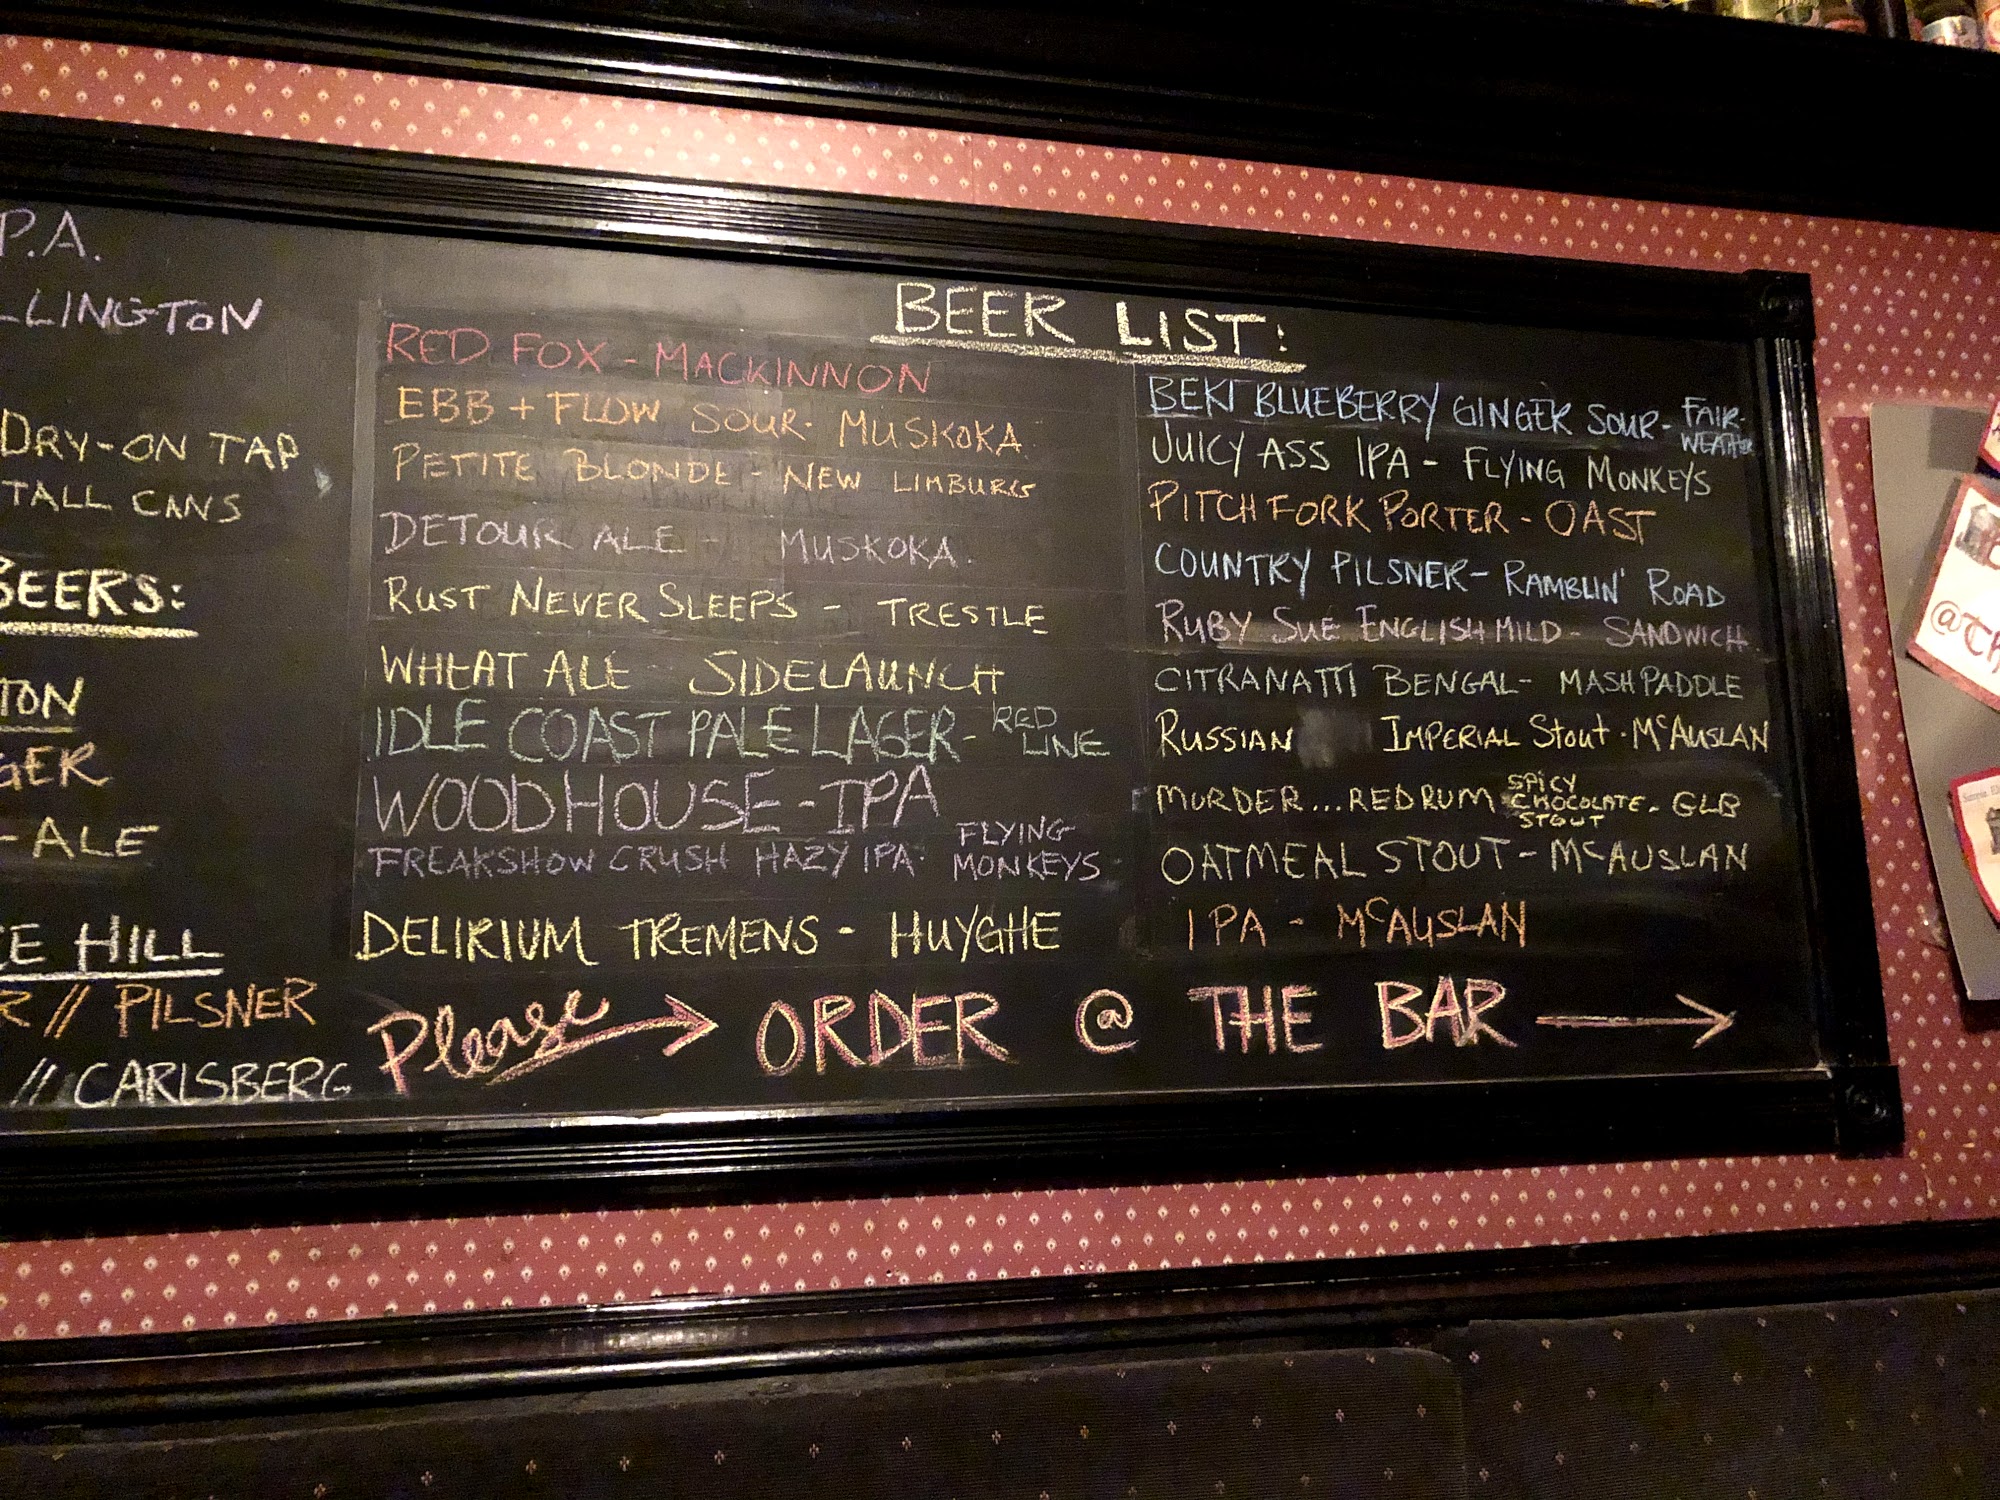 P.A.
LLINGTON
DRY-ON TAP
TALL CANS
BEERS:
TON
GER
- ALE
CE HILL
R // PILSNER
// CARLSBERG
BEER LIST:
RED FOX - MACKINNON
EBB + FLOW SOUR - MUSKOKA
PETITE BLONDE - NEW LIMBURG
DETOUR ALE - MUSKOKA.
RUST NEVER SLEEPS - TRESTLE
WHEAT ALE SIDELAUNCH
IDLE COAST PALE LAGER - RED LINE
WOODHOUSE - IPA
FREAKSHOW CRUSH HAZY IPA - FLYING MONKEYS
DELIRIUM TREMENS - HUYGHE
BEKI BLUEBERRY GINGER SOUR - FAIR-WEATHER
JUICY ASS IPA - FLYING MONKEYS
PITCHFORK PORTER - OAST
COUNTRY PILSNER - RAMBLIN' ROAD
RUBY SUE ENGLISH MILD - SANDWICH
CITRANATTI BENGAL - MASH PADDLE
RUSSIAN IMPERIAL STOUT - McAUSLAN
MURDER...REDRUM SPICY CHOCOLATE STOUT - GLB
OATMEAL STOUT - McAUSLAN
IPA - McAUSLAN
Please → ORDER @ THE BAR →